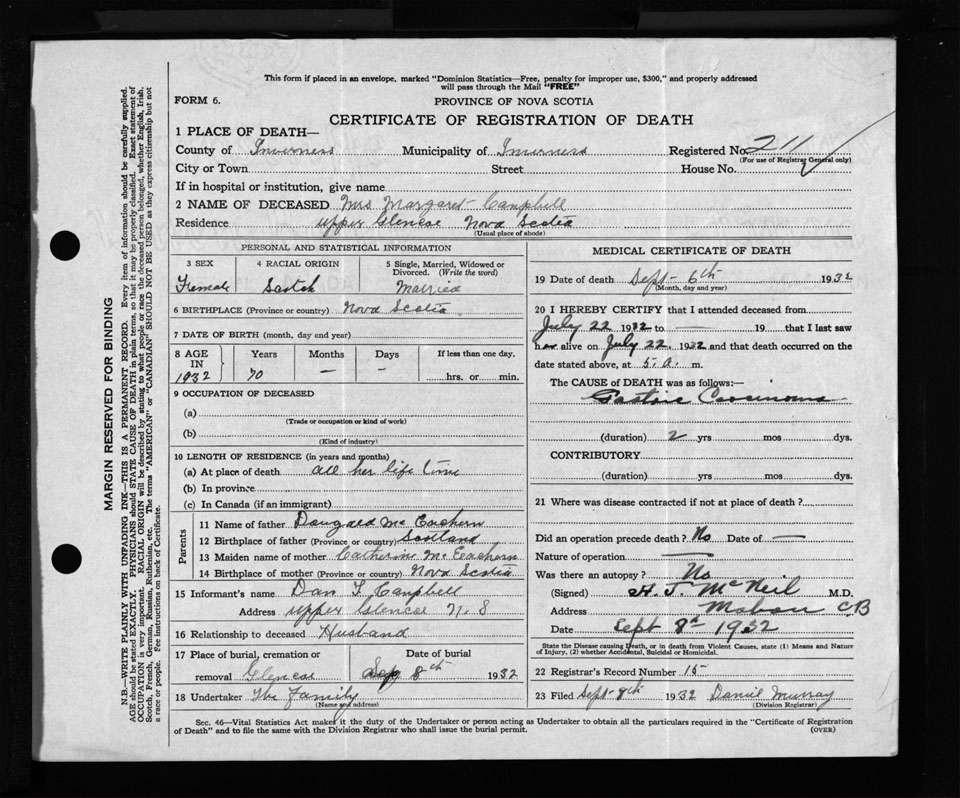 This form if placed in an envelope, marked "Dominion Statistics—Free, penalty for improper use, $300," and properly addressed
will pass through the Mail "FREE"
FORM 6.
PROVINCE OF NOVA SCOTIA
CERTIFICATE OF REGISTRATION OF DEATH
1 PLACE OF DEATH—
County of Inverness Municipality of Inverness Registered No. 211
(For use of Registrar General only)
City or Town Street House No.
If in hospital or institution, give name
2 NAME OF DECEASED Mrs Margaret Campbell
Residence Upper Glencoe Nova Scotia
(Usual place of abode)
PERSONAL AND STATISTICAL INFORMATION
3 SEX 4 RACIAL ORIGIN 5 Single, Married, Widowed or
Divorced. (Write the word)
Female Scotch Married
6 BIRTHPLACE (Province or country) Nova Scotia
7 DATE OF BIRTH (month, day and year)
8 AGE IN 1932 Years Months Days If less than one day,
70 — — hrs. or min.
9 OCCUPATION OF DECEASED
(a)
(Trade or occupation or kind of work)
(b)
(Kind of industry)
10 LENGTH OF RESIDENCE (in years and months)
(a) At place of death all her life time
(b) In province
(c) In Canada (if an immigrant)
Parents
11 Name of father Dougald Mc Eachern
12 Birthplace of father (Province or country) Scotland
13 Maiden name of mother Catherine McEachern
14 Birthplace of mother (Province or country) Nova Scotia
15 Informant's name Dan Campbell
Address Upper Glencoe N.S
16 Relationship to deceased Husband
17 Place of burial, cremation or Date of burial
removal Glencoe Sep 8th 1932
18 Undertaker The Family
(Name and address)
MEDICAL CERTIFICATE OF DEATH
19 Date of death Sept 6th 1932
(Month, day and year)
20 I HEREBY CERTIFY that I attended deceased from
July 22 1932 to — 19 that I last saw
her alive on July 22 1932 and that death occurred on the
date stated above, at 5. a. m.
The CAUSE of DEATH was as follows:—
Gastric Carcinoma
(duration) 2 yrs mos dys.
CONTRIBUTORY
(duration) yrs mos dys.
21 Where was disease contracted if not at place of death?
Did an operation precede death? No Date of —
Nature of operation —
Was there an autopsy? No
(Signed) H. J. McNeil M.D.
Address Mabou CB
Date Sept 8th 1932
State the Disease causing Death, or in death from Violent Causes, state (1) Means and Nature
of Injury, (2) whether Accidental, Suicidal or Homicidal.
22 Registrar's Record Number 15
23 Filed Sept 8th 1932 Daniel Murray
(Division Registrar)
Sec. 46—Vital Statistics Act makes it the duty of the Undertaker or person acting as Undertaker to obtain all the particulars required in the "Certificate of Registration
of Death" and to file the same with the Division Registrar who shall issue the burial permit. (OVER)
MARGIN RESERVED FOR BINDING
N.B.—WRITE PLAINLY WITH UNFADING INK—THIS IS A PERMANENT RECORD. Every item of information should be carefully supplied.
AGE should be stated EXACTLY. PHYSICIANS should STATE CAUSE OF DEATH in plain terms, so that it may be properly classified. Exact statement of
OCCUPATION is very important. RACIAL ORIGIN will be described by stating to what people or race the deceased person belonged, whether English, Irish,
Scotch, French, German, Russian, Ruthenian, etc. The terms "AMERICAN" or "CANADIAN" SHOULD NOT BE USED as they express citizenship but not
a race or people. Fee instructions on back of Certificate.